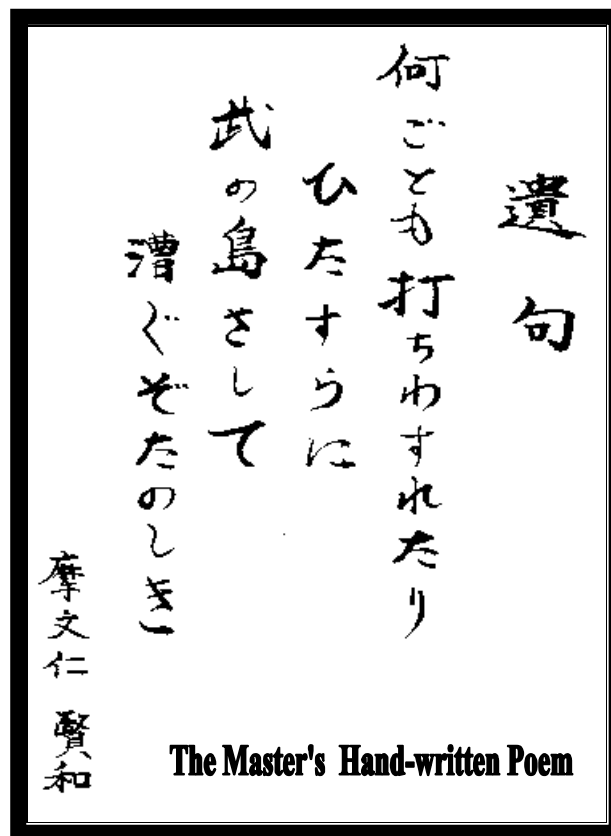 遺句
何ごとも打ちわすれたり
ひたすらに
武の島さして
漕ぐぞたのしき
摩文仁 賢和
The Master's Hand-written Poem